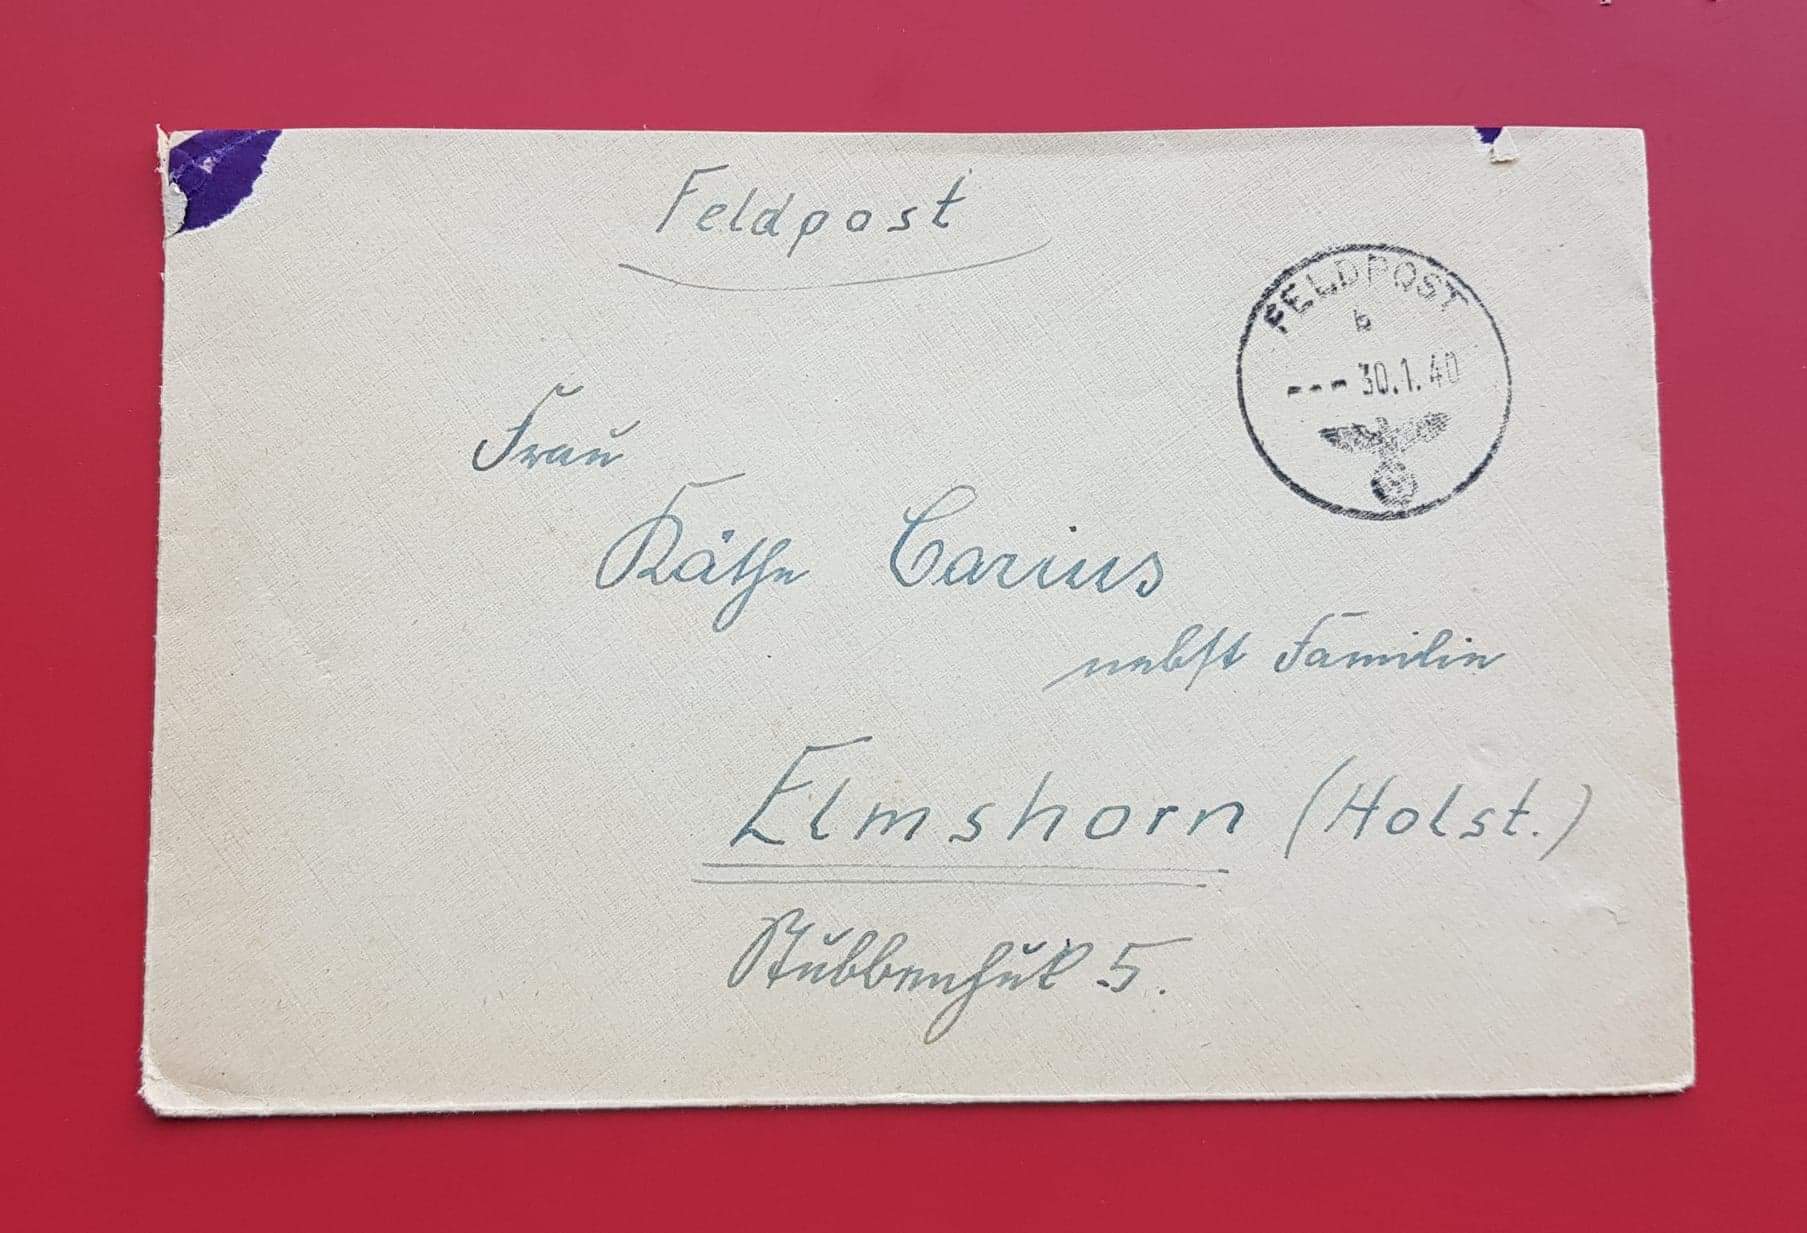 Feldpost
FELDPOST
b
--- 30.1.40
Frau
Käthe Carius
nebst Familie
Elmshorn (Holst.)
Stubbenhuk 5.